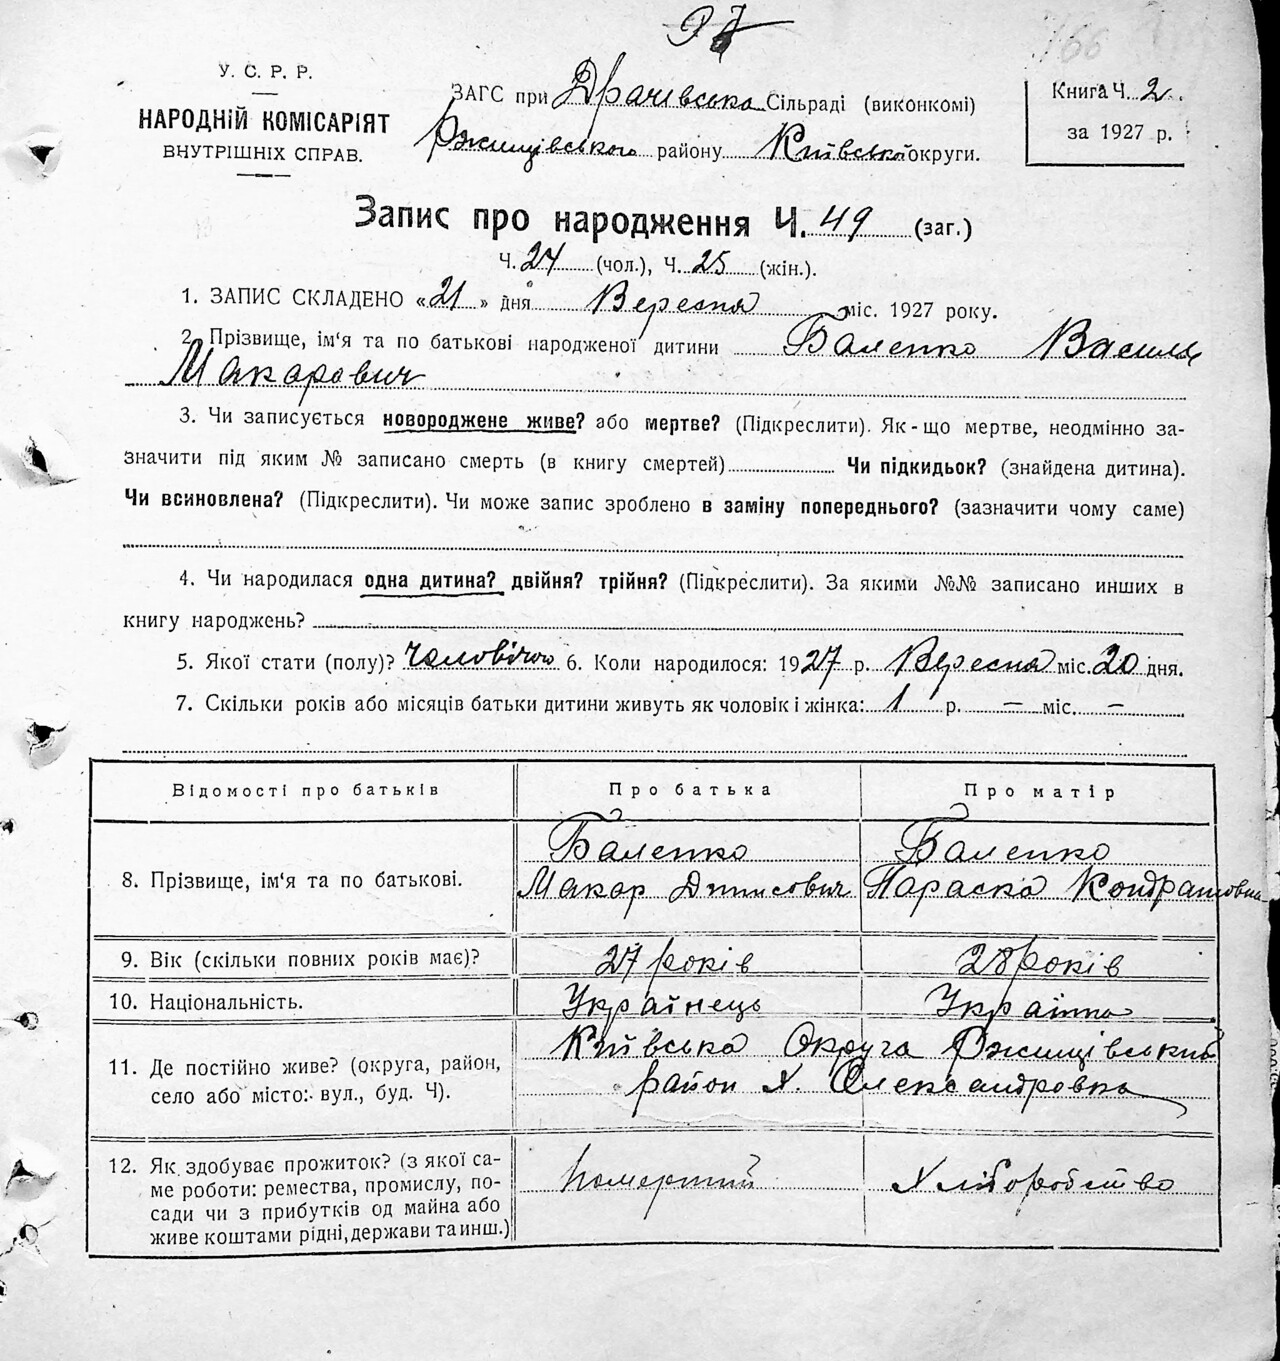 97
166
У. С. Р. Р.
НАРОДНІЙ КОМІСАРІЯТ
ВНУТРІШНІХ СПРАВ.
ЗАГС при Драчівська Сільраді (виконкомі)
Ржищівського району Київської округи.
Книга Ч. 2.
за 1927 р.
Запис про народження Ч. 49 (заг.)
Ч. 24 (чол.), Ч. 25 (жін.).
1. ЗАПИС СКЛАДЕНО «21» дня Вересня міс. 1927 року.
2. Прізвище, ім'я та по батькові народженої дитини Баленко Василь
Макарович
3. Чи записується новороджене живе? або мертве? (Підкреслити). Як-що мертве, неодмінно за-
значити під яким № записано смерть (в книгу смертей) Чи підкидьок? (знайдена дитина).
Чи всиновлена? (Підкреслити). Чи може запис зроблено в заміну попереднього? (зазначити чому саме)
4. Чи народилася одна дитина? двійня? трійня? (Підкреслити). За якими №№ записано инших в
книгу народжень?
5. Якої стати (полу)? чоловічої 6. Коли народилося: 1927 р. Вересня міс. 20 дня.
7. Скільки років або місяців батьки дитини живуть як чоловік і жінка: 1 р. — міс. —
Відомості про батьків Про батька Про матір
8. Прізвище, ім'я та по батькові.
Баленко Баленко
Макар Денисович Параска Кондратовна
9. Вік (скільки повних років має)? 27 років 28 років
10. Національність. Українець Українка
11. Де постійно живе? (округа, район,
село або місто: вул., буд. Ч).
Київська Округа Ржищівський
район Х. Олександровка
12. Як здобуває прожиток? (з якої са-
ме роботи: ремества, промислу, по-
сади чи з прибутків од майна або
живе коштами рідні, держави та инш.)
Померший Хліборобство